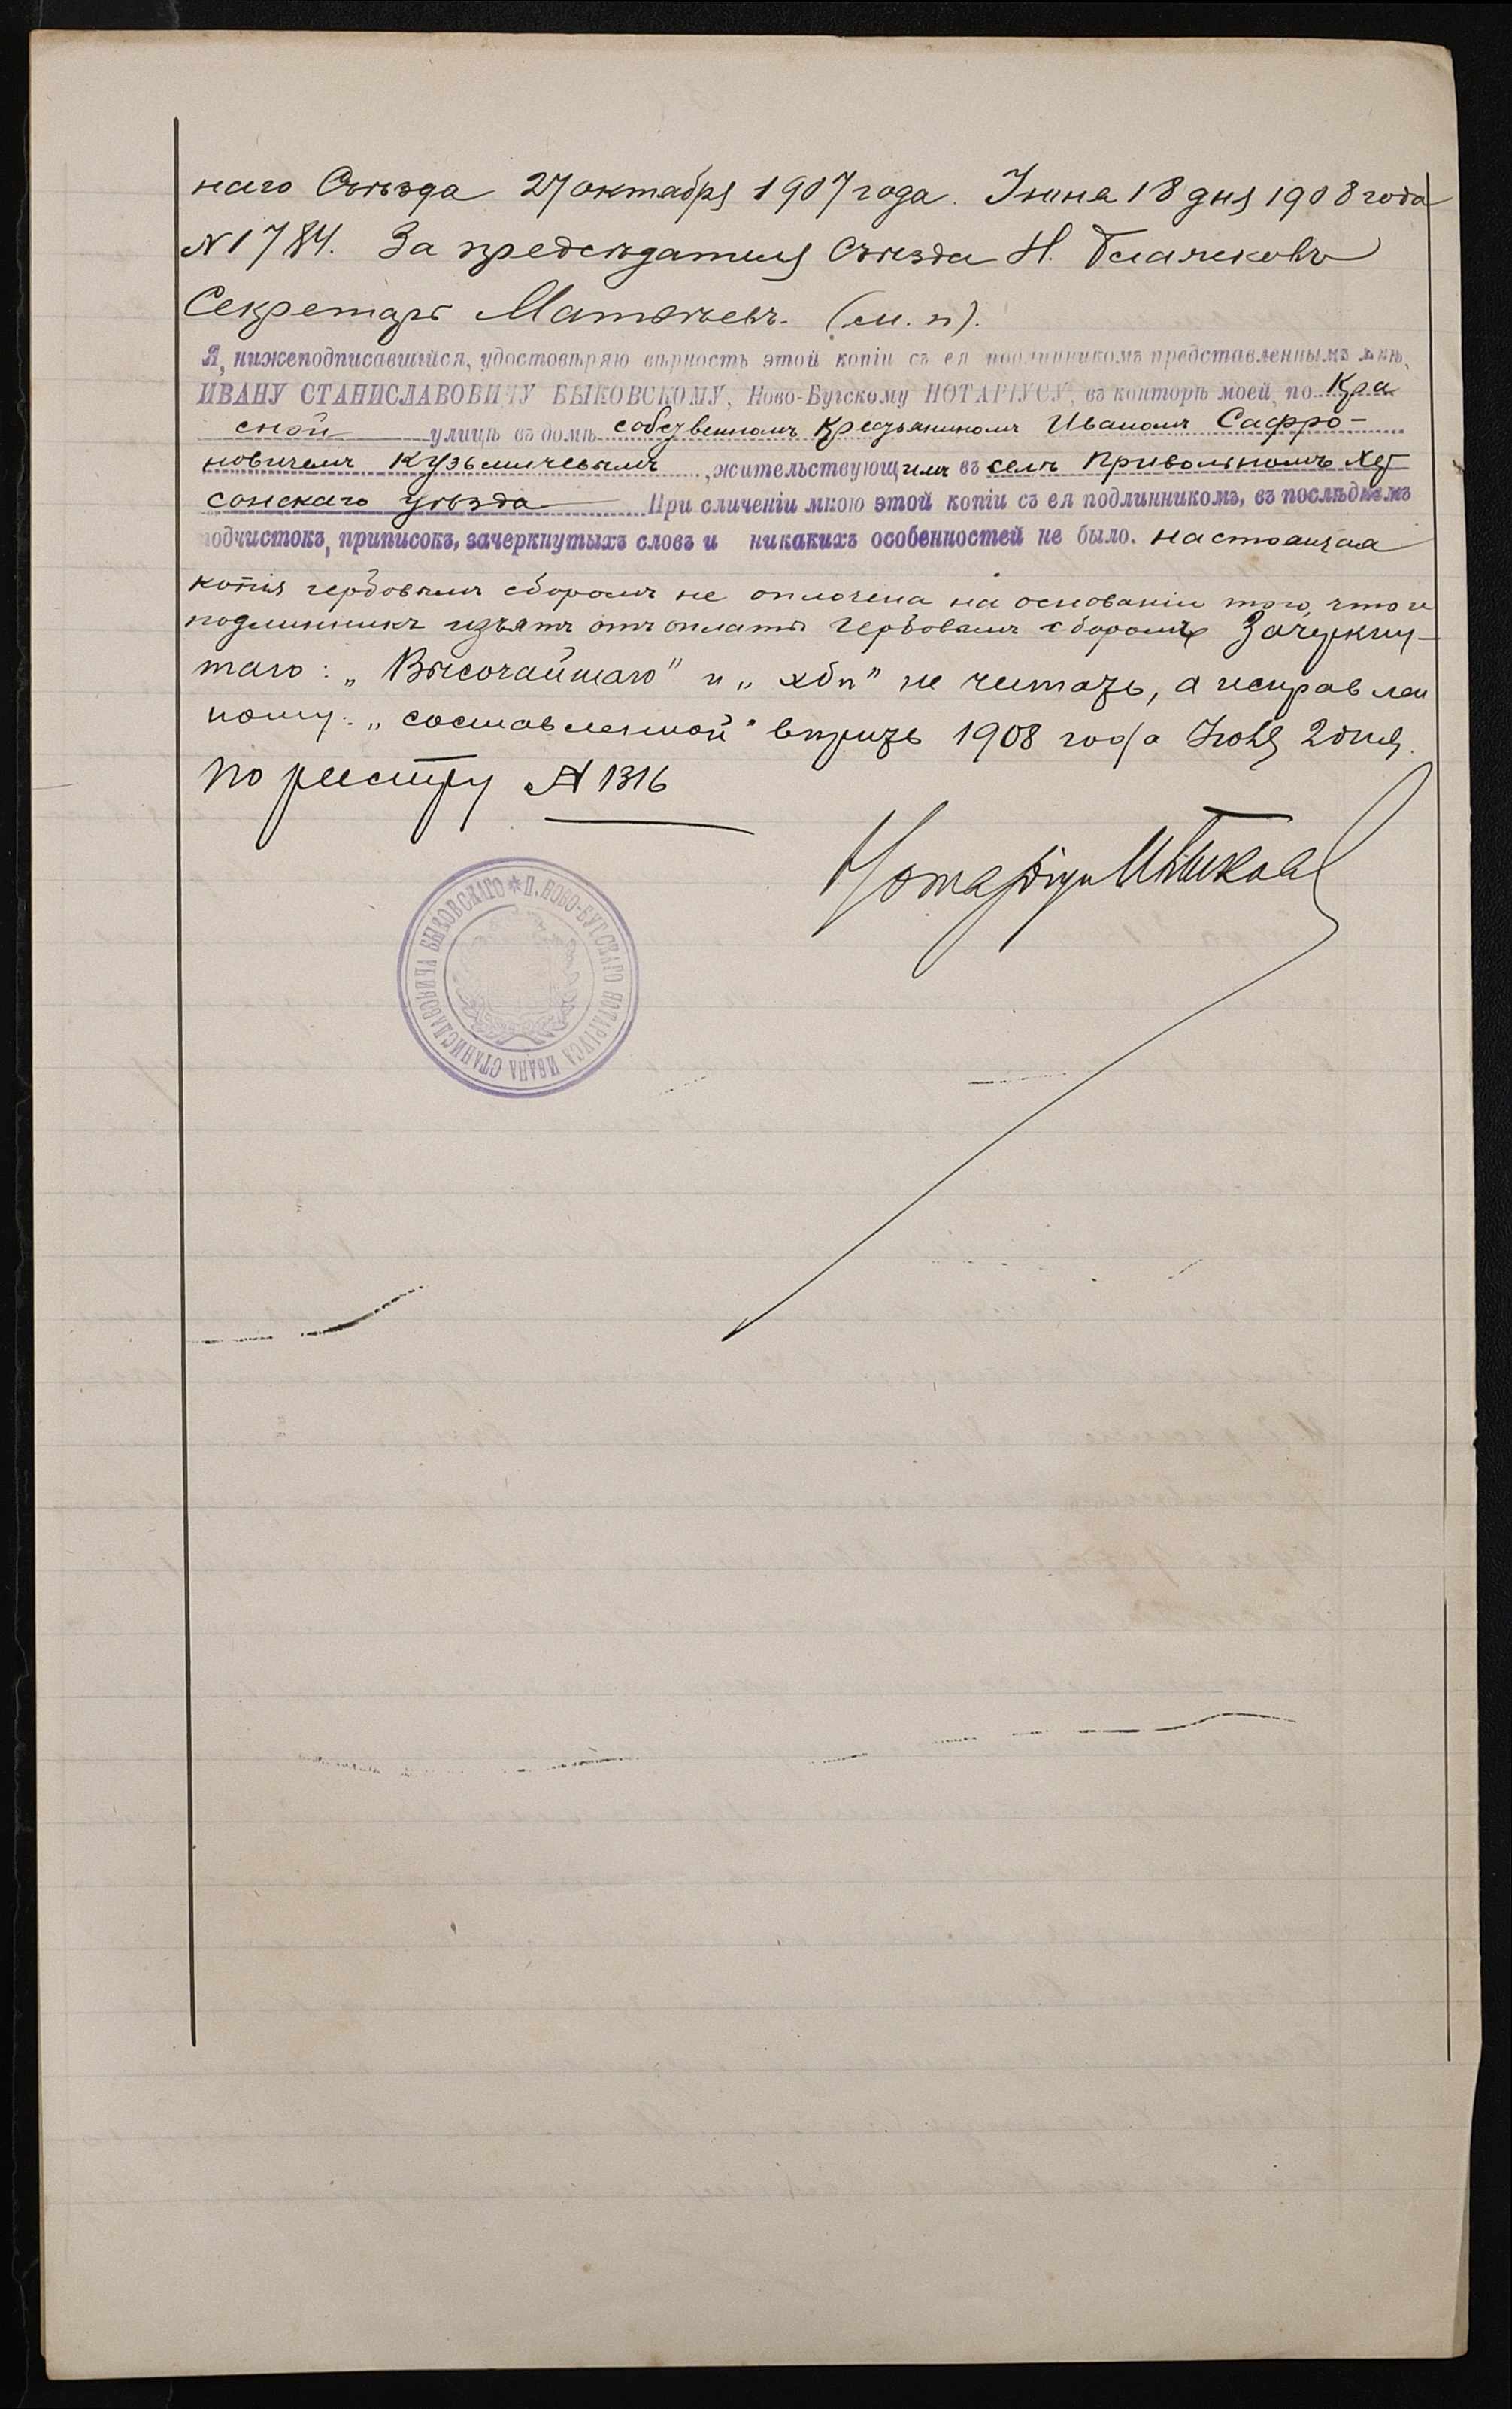 наго Съѣзда 27 октября 1907 года. Іюня 18 дня 1908 года
№ 1784. За предсѣдателя Съѣзда Н.
Секретарь Матвѣевъ. (м. п).
Я, нижеподписавшійся, удостовѣряю вѣрность этой копіи съ ея подлинникомъ представленнымъ мнѣ,
ИВАНУ СТАНИСЛАВОВИЧУ БЫКОВСКОМУ, Ново-Бугскому НОТАРІУСУ, въ конторѣ моей, по Кра
сной улицѣ въ домѣ собственномъ крестьяниномъ Иваномъ Сафро-
новичемъ Кузьмичевымъ, жительствующимъ въ селѣ Привольномъ Хер
сонскаго уѣзда При сличеніи мною этой копіи съ ея подлинникомъ, въ послѣднемъ
подчистокъ, приписокъ, зачеркнутыхъ словъ и никакихъ особенностей не было. настоящая
копія гербовымъ сборомъ не оплочена на основаніи того, что и
подлинникъ изъятъ отъ оплаты гербовымъ сборомъ Зачеркну-
таго: „Высочайшаго" и „хбп" не читать, а исправлен
ному: „составленной" вѣрить 1908 года Іюля 2 дня.
По реестру № 1316
Нотаріусъ И Быковс
П. НОВО-БУГСКАГО НОТАРІУСА ИВАНА СТАНИСЛАВОВИЧА БЫКОВСКАГО *